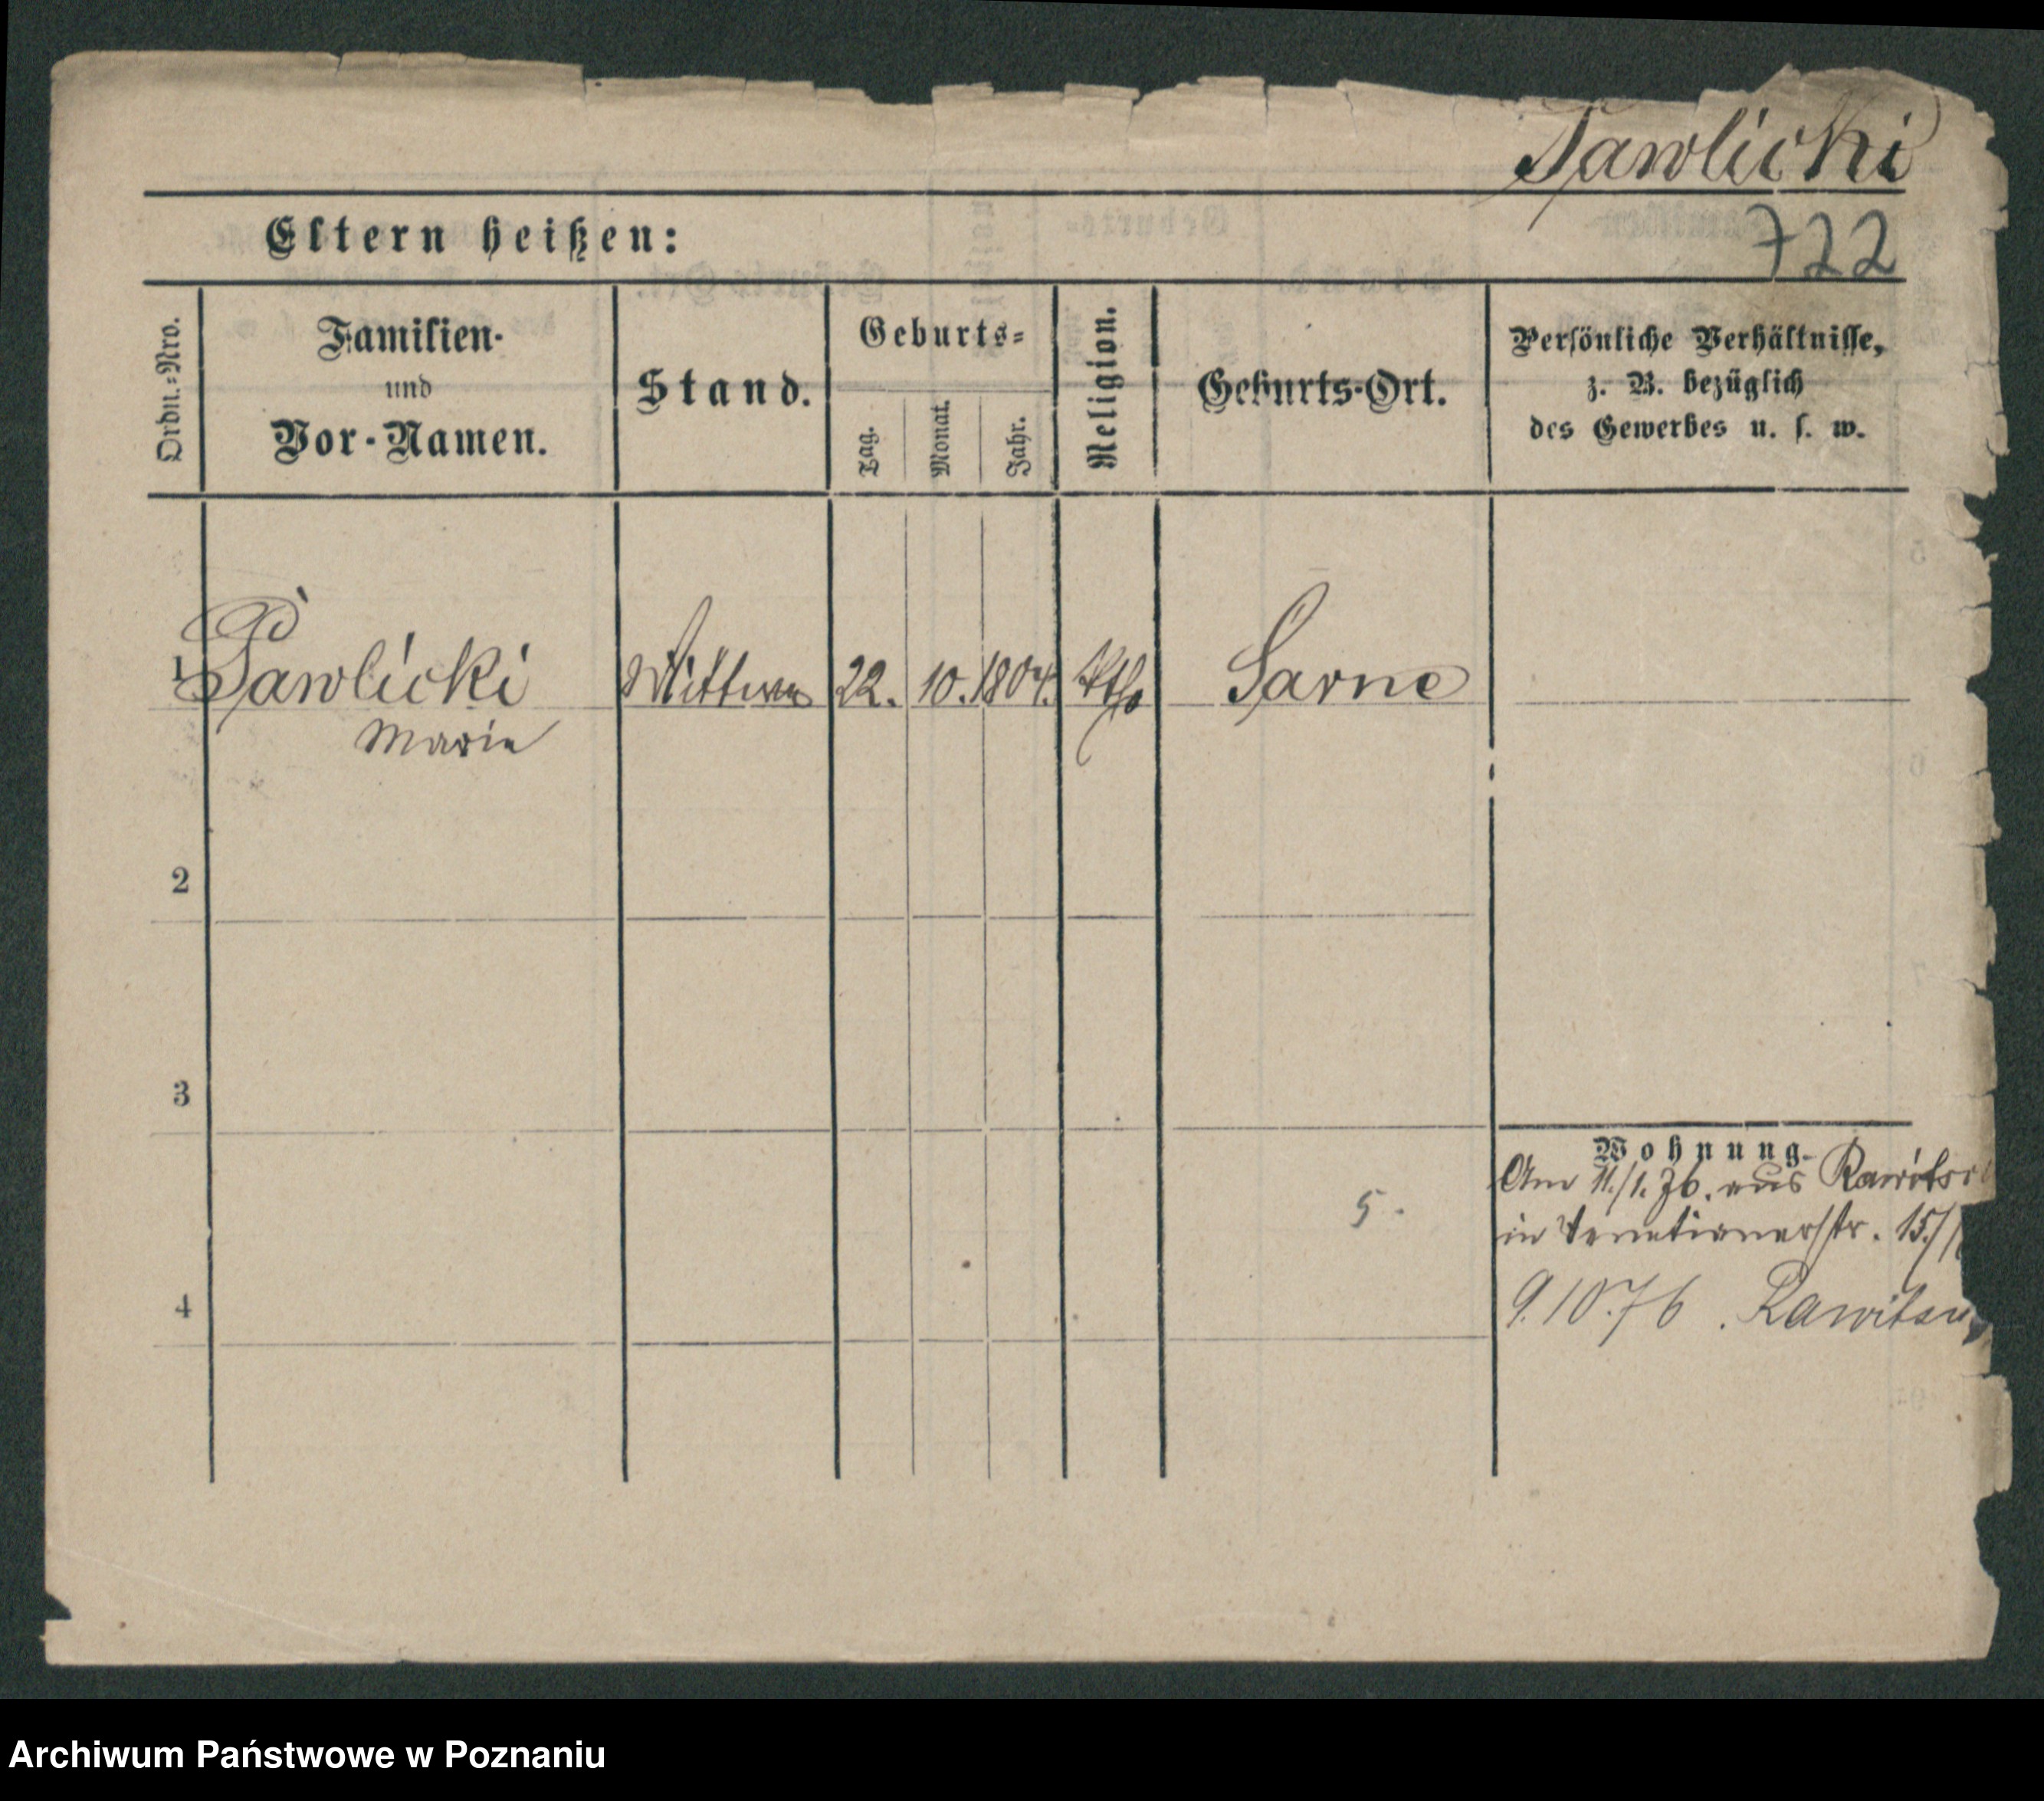 Pawlicki
722
Eltern heißen:
Ordn.-Nro.
Familien-
und
Vor-Namen.
Stand.
Geburts-
Tag.
Monat.
Jahr.
Religion.
Geburts-Ort.
Persönliche Verhältnisse,
z. B. bezüglich
des Gewerbes u. s. w.
1 Pawlicki Wittwe 22. 10. 1804. Kth Sarne
Marie
2
3
Wohnung.
Am 11./1. 76. aus Rawitsc
in Venetianerstr. 15/
5.
9.10.76. Rawitsc
4
Archiwum Państwowe w Poznaniu